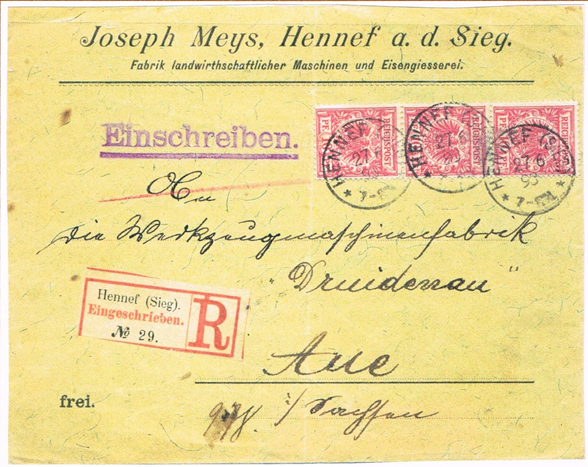 Joseph Meys, Hennef a. d. Sieg.
Fabrik landwirthschaftlicher Maschinen und Eisengiesserei.
Einschreiben.
REICHSPOST
PF.
HENNEF (SIEG)
21 6
93
7-8N.
An
die Werkzeugmaschinenfabrik
"Druidenau"
Hennef (Sieg).
Eingeschrieben.
№ 29.
R
Aue
frei.
i/Sachsen